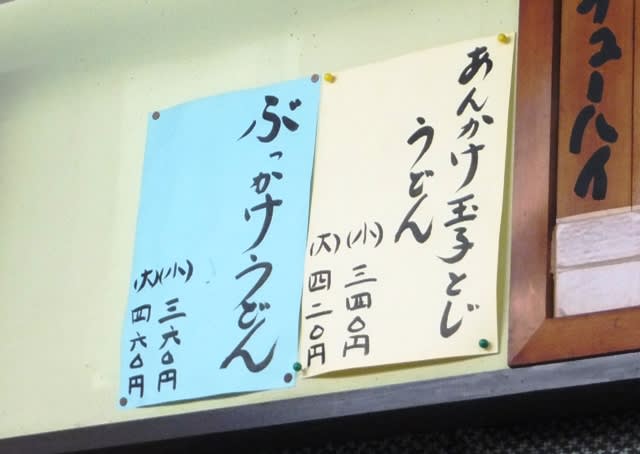 チューハイ
あんかけ玉子とじ
うどん
(小)三四〇円
(大)四二〇円
ぶっかけうどん
(小)三六〇円
(大)四六〇円